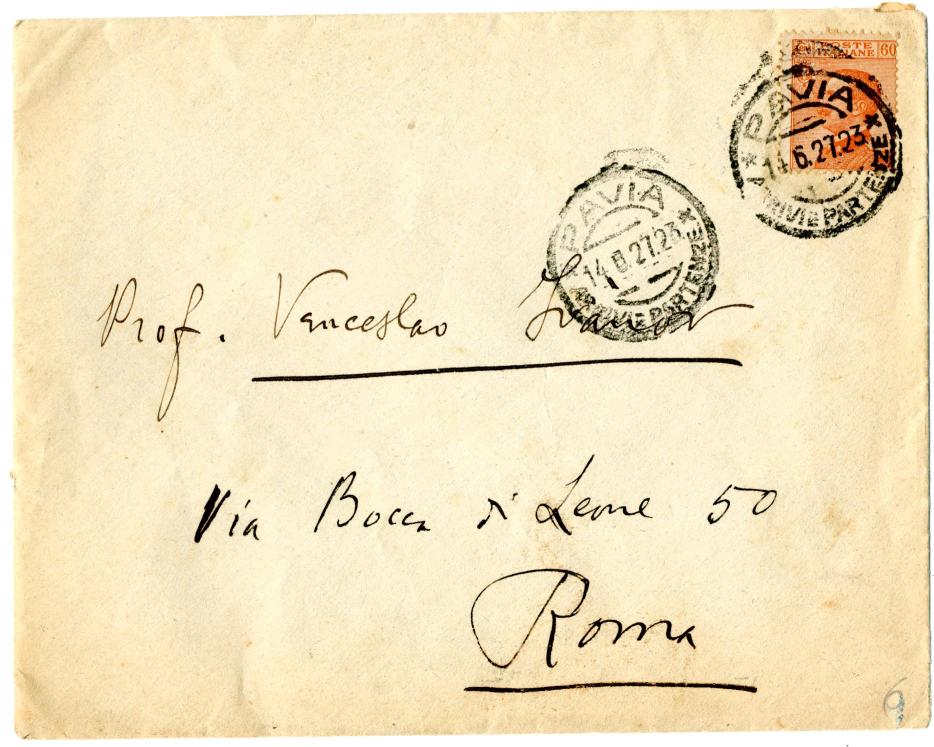 POSTE
60
PAVIA
14.6.27.23
ARRIVI E PARTENZE
PAVIA
14.6.27.23
ARRIVI E PARTENZE
Prof. Venceslao Ivanov
Via Bocca di Leone 50
Roma